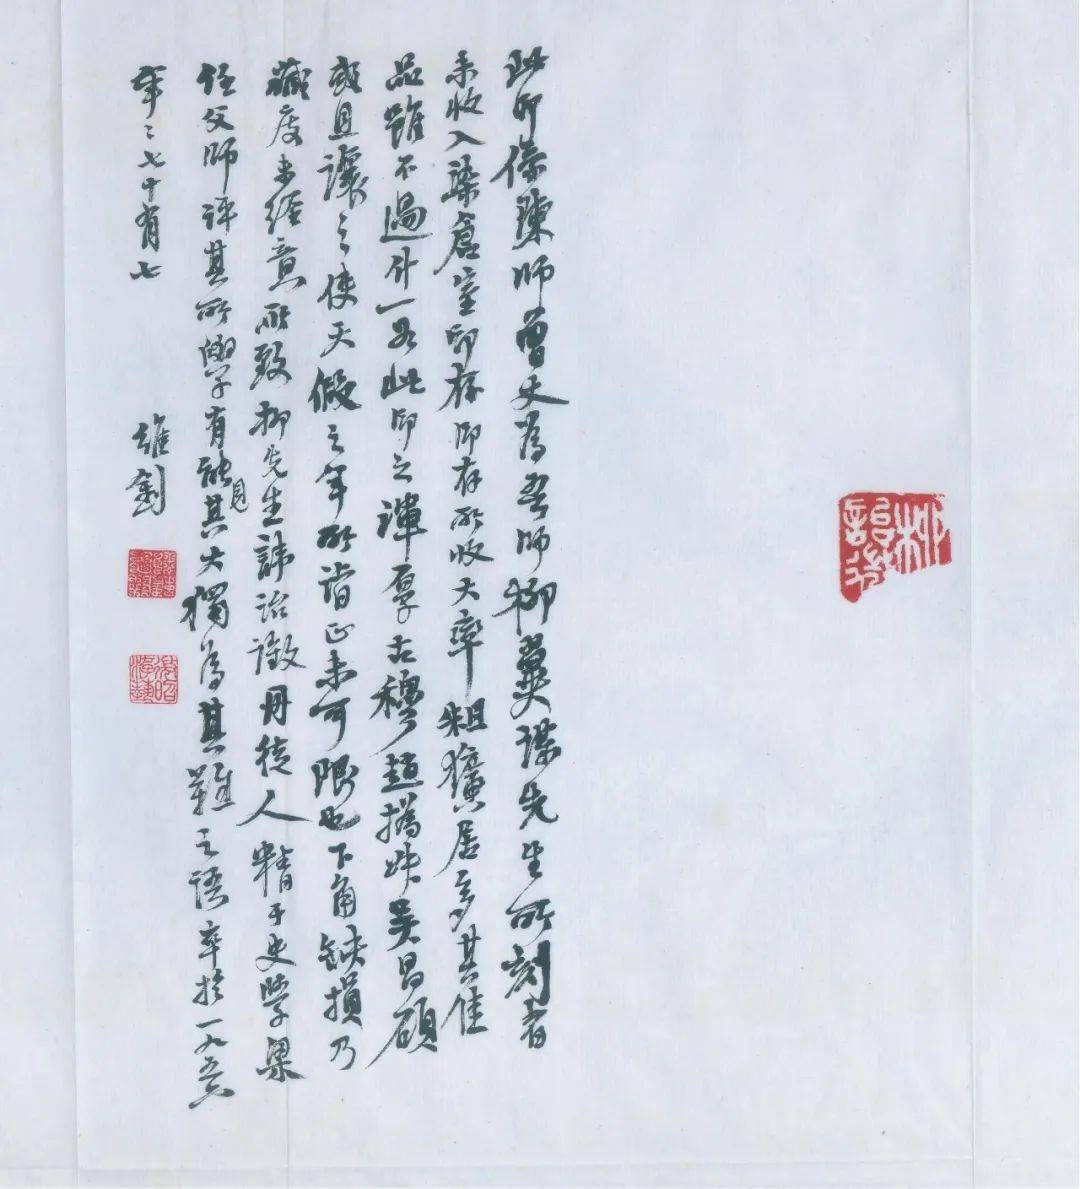 柳詒徵
此印係陳師曾丈為吾師柳翼謀先生所刻者
未收入染倉室印存印存所收大率粗獷居多其佳
品雖不過什一若此印之渾厚古穆趙撝叔吳昌碩
或且讓之使天假之年所詣正未可限也下角缺損乃
藏庋未經意所致柳先生諱詒徵丹徒人精于史學梁
任父師評其所學有能見其大獨為其難之語卒於一九五六
年〻七十有七 維釗